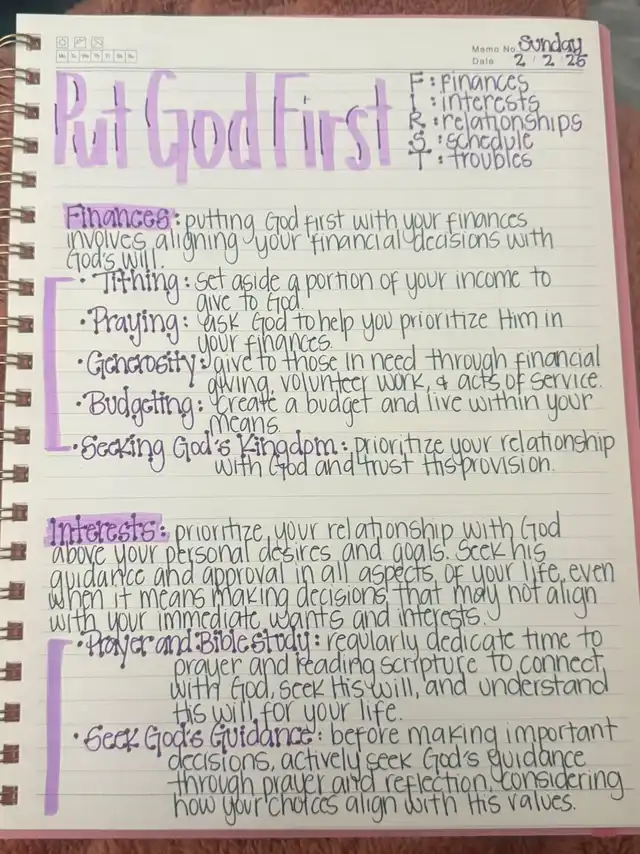 Memo No. Sunday
Date 2 / 2 / 25
Put God First
F: finances
I: interests
R: relationships
S: schedule
T: troubles
Finances: putting God first with your finances
involves aligning your financial decisions with
God's will.
• Tithing: set aside a portion of your income to
give to God.
• Praying: ask God to help you prioritize Him in
your finances.
• Generosity: give to those in need through financial
giving, volunteer work, & acts of service.
• Budgeting: create a budget and live within your
means.
• Seeking God's Kingdom: prioritize your relationship
with God and trust His provision.
Interests: prioritize your relationship with God
above your personal desires and goals. Seek his
guidance and approval in all aspects of your life, even
when it means making decisions that may not align
with your immediate wants and interests.
• Prayer and Bible study: regularly dedicate time to
prayer and reading scripture to connect
with God, seek His will, and understand
His will for your life.
• Seek God's Guidance: before making important
decisions, actively seek God's guidance
through prayer and reflection, considering
how your choices align with His values.